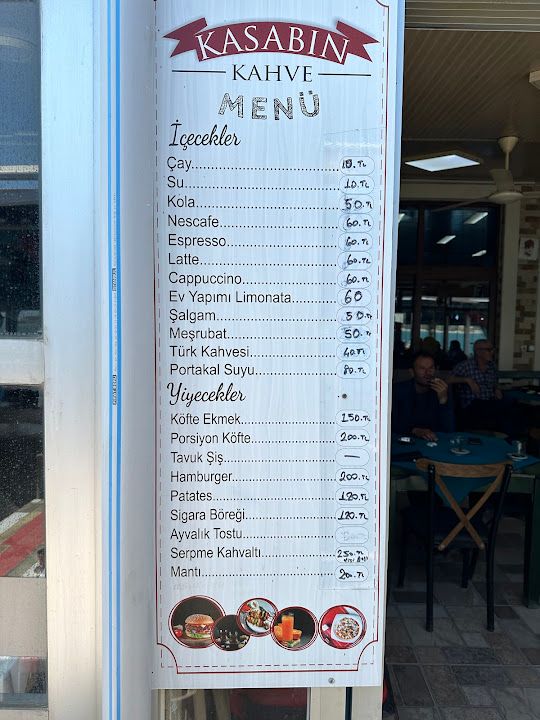 KASABIN
KAHVE
MENÜ
İçecekler
Çay
Su 10.TL
Kola 50.TL
Nescafe 60.TL
Espresso 60.TL
Latte 60.TL
Cappuccino 60.TL
Ev Yapımı Limonata 60
Şalgam 50.TL
Meşrubat 50.TL
Türk Kahvesi 40.TL
Portakal Suyu 80.TL
Yiyecekler
Köfte Ekmek 150.TL
Porsiyon Köfte 200.TL
Tavuk Şiş —
Hamburger 200.TL
Patates 120.TL
Sigara Böreği 120.TL
Ayvalık Tostu
Serpme Kahvaltı 250.TL
Mantı 200.TL